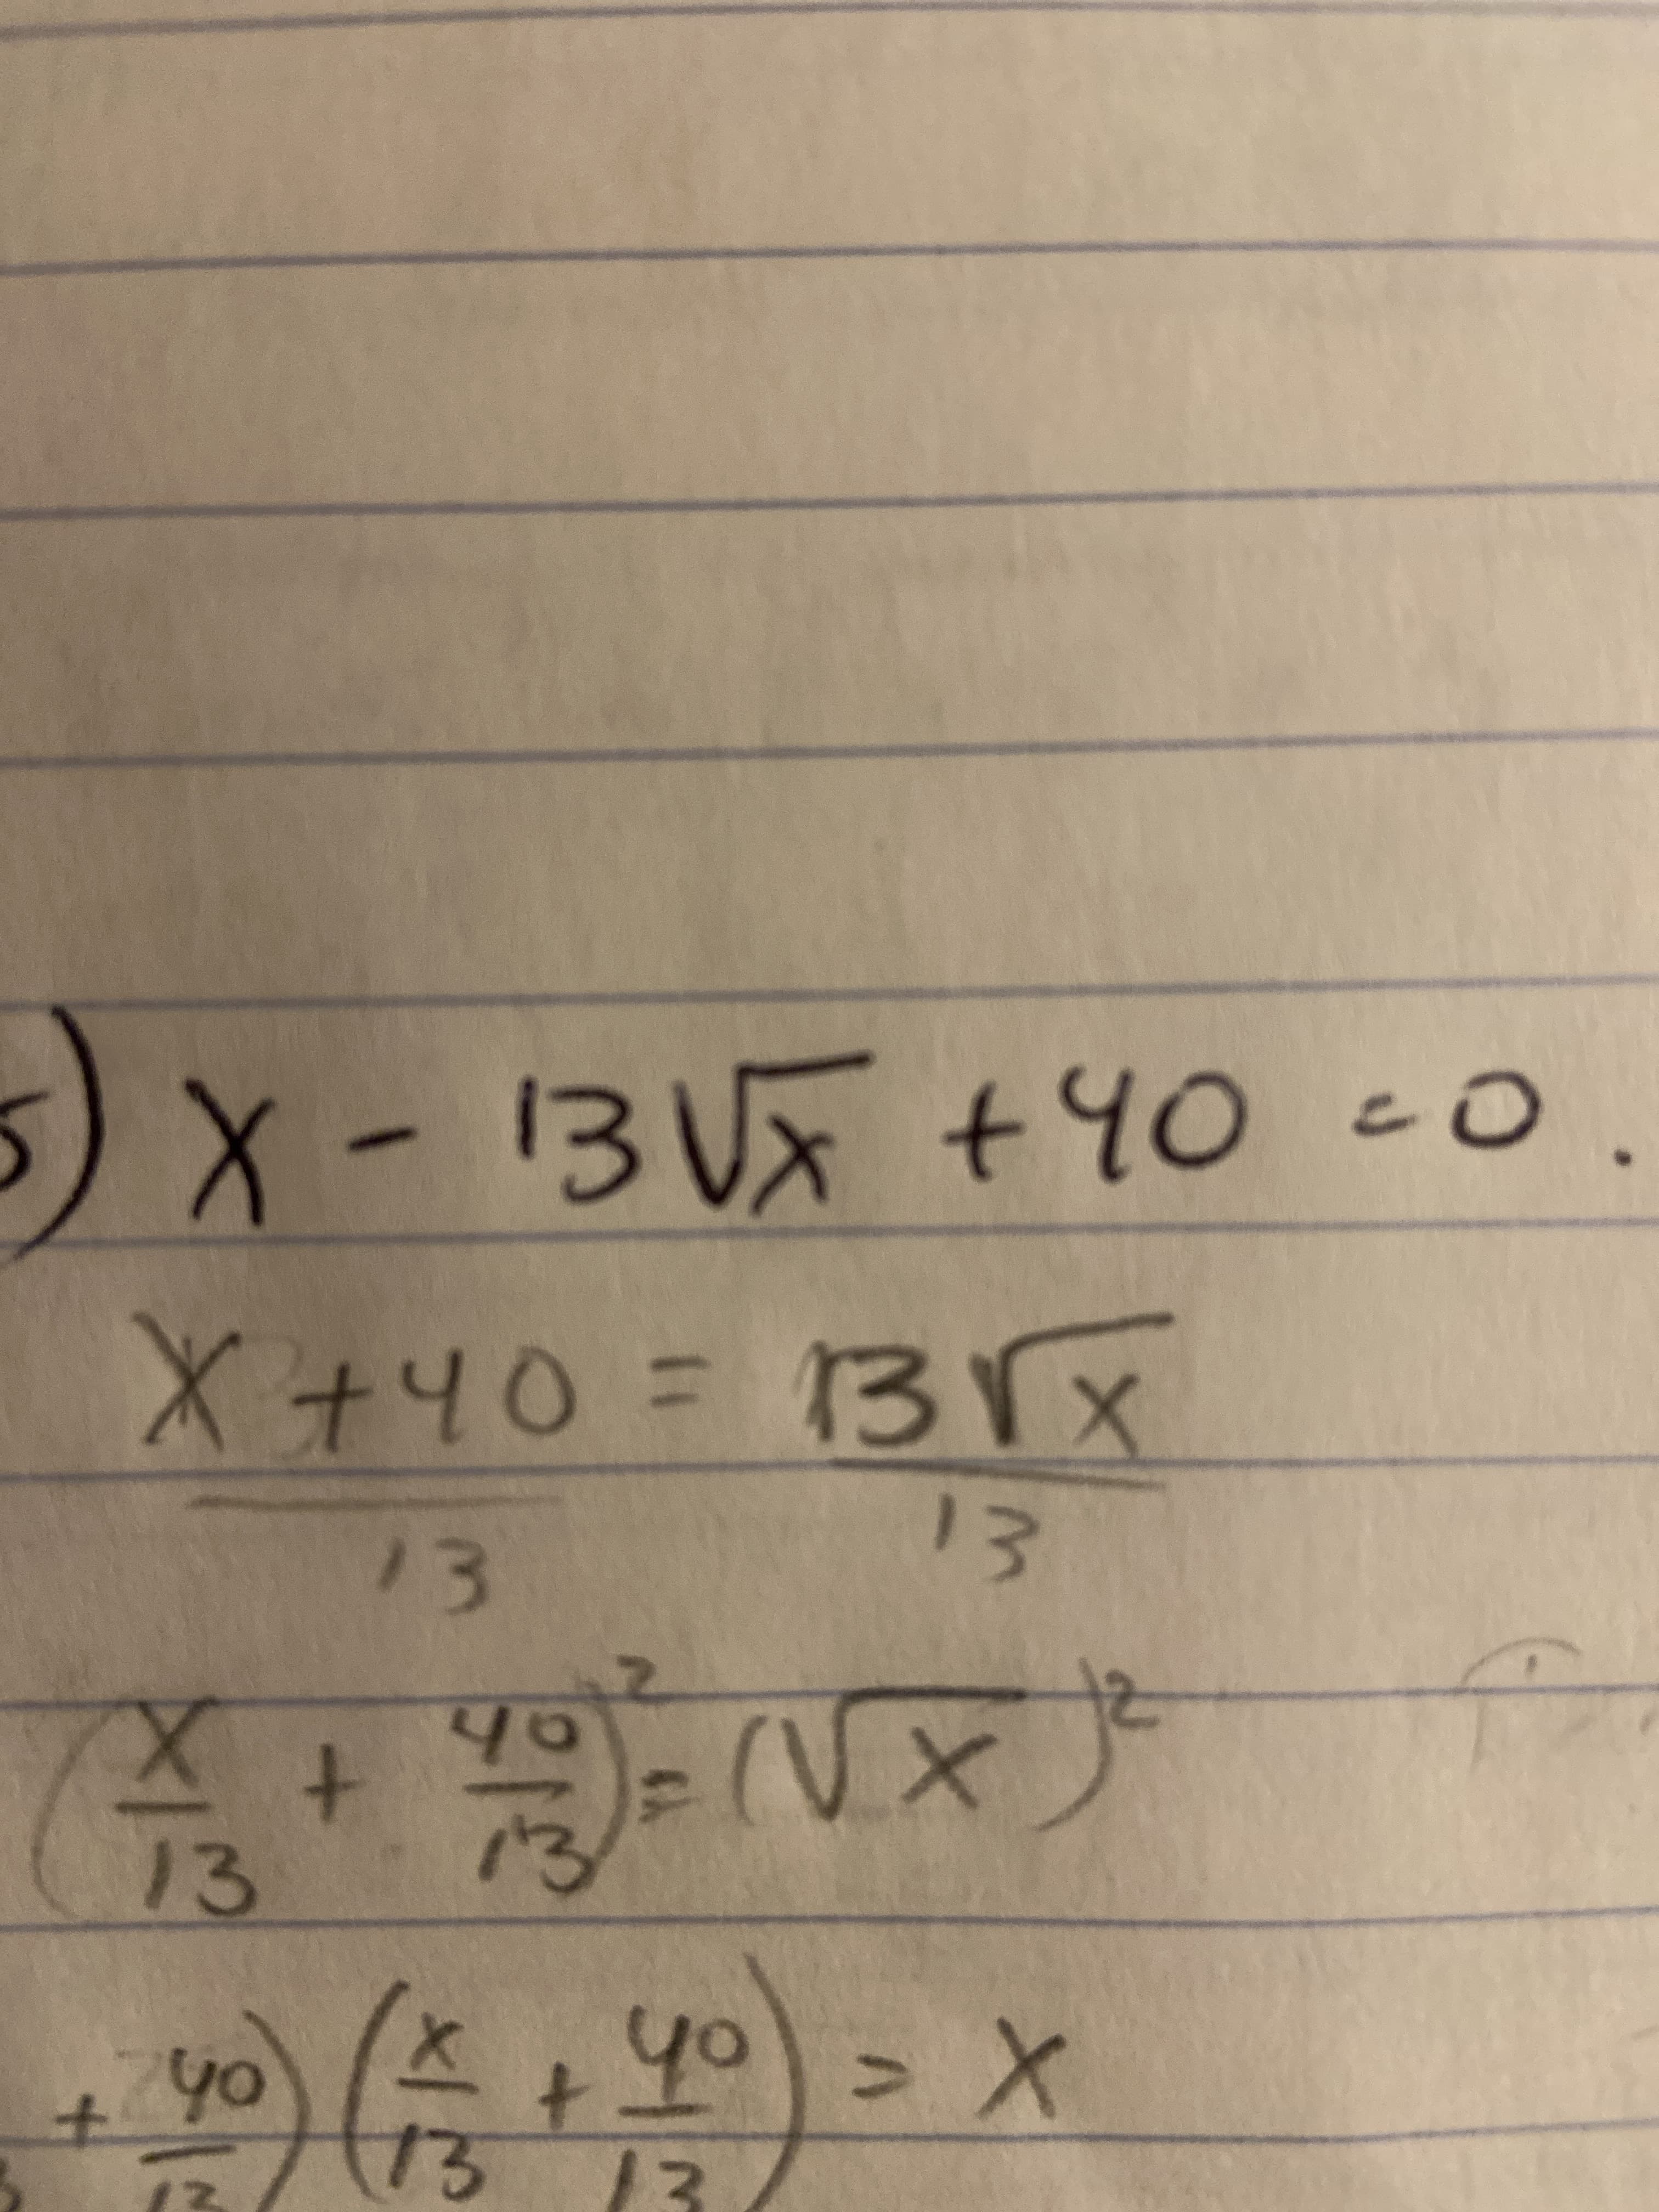 5) x - 13√x + 40 = 0.
x + 40 = 13√x
13 13
(x/13 + 40/13)² = (√x)²
+ 40/13)(x/13 + 40/13) = x